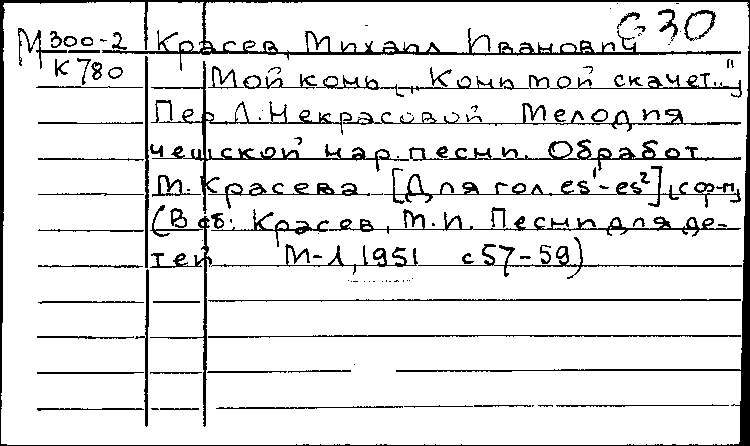 G30
М300-2 Красев, Михаил Иванович
К780 Мой конь [„Конь мой скачет..."]
Пер Л. Некрасовой. Мелодия
чешской нар. песни. Обработ
М. Красева. [Для гол. es¹-es²] [с ф-п]
(В сб: Красев, М.И. Песни для де-
тей М-Л, 1951 с 57-59)